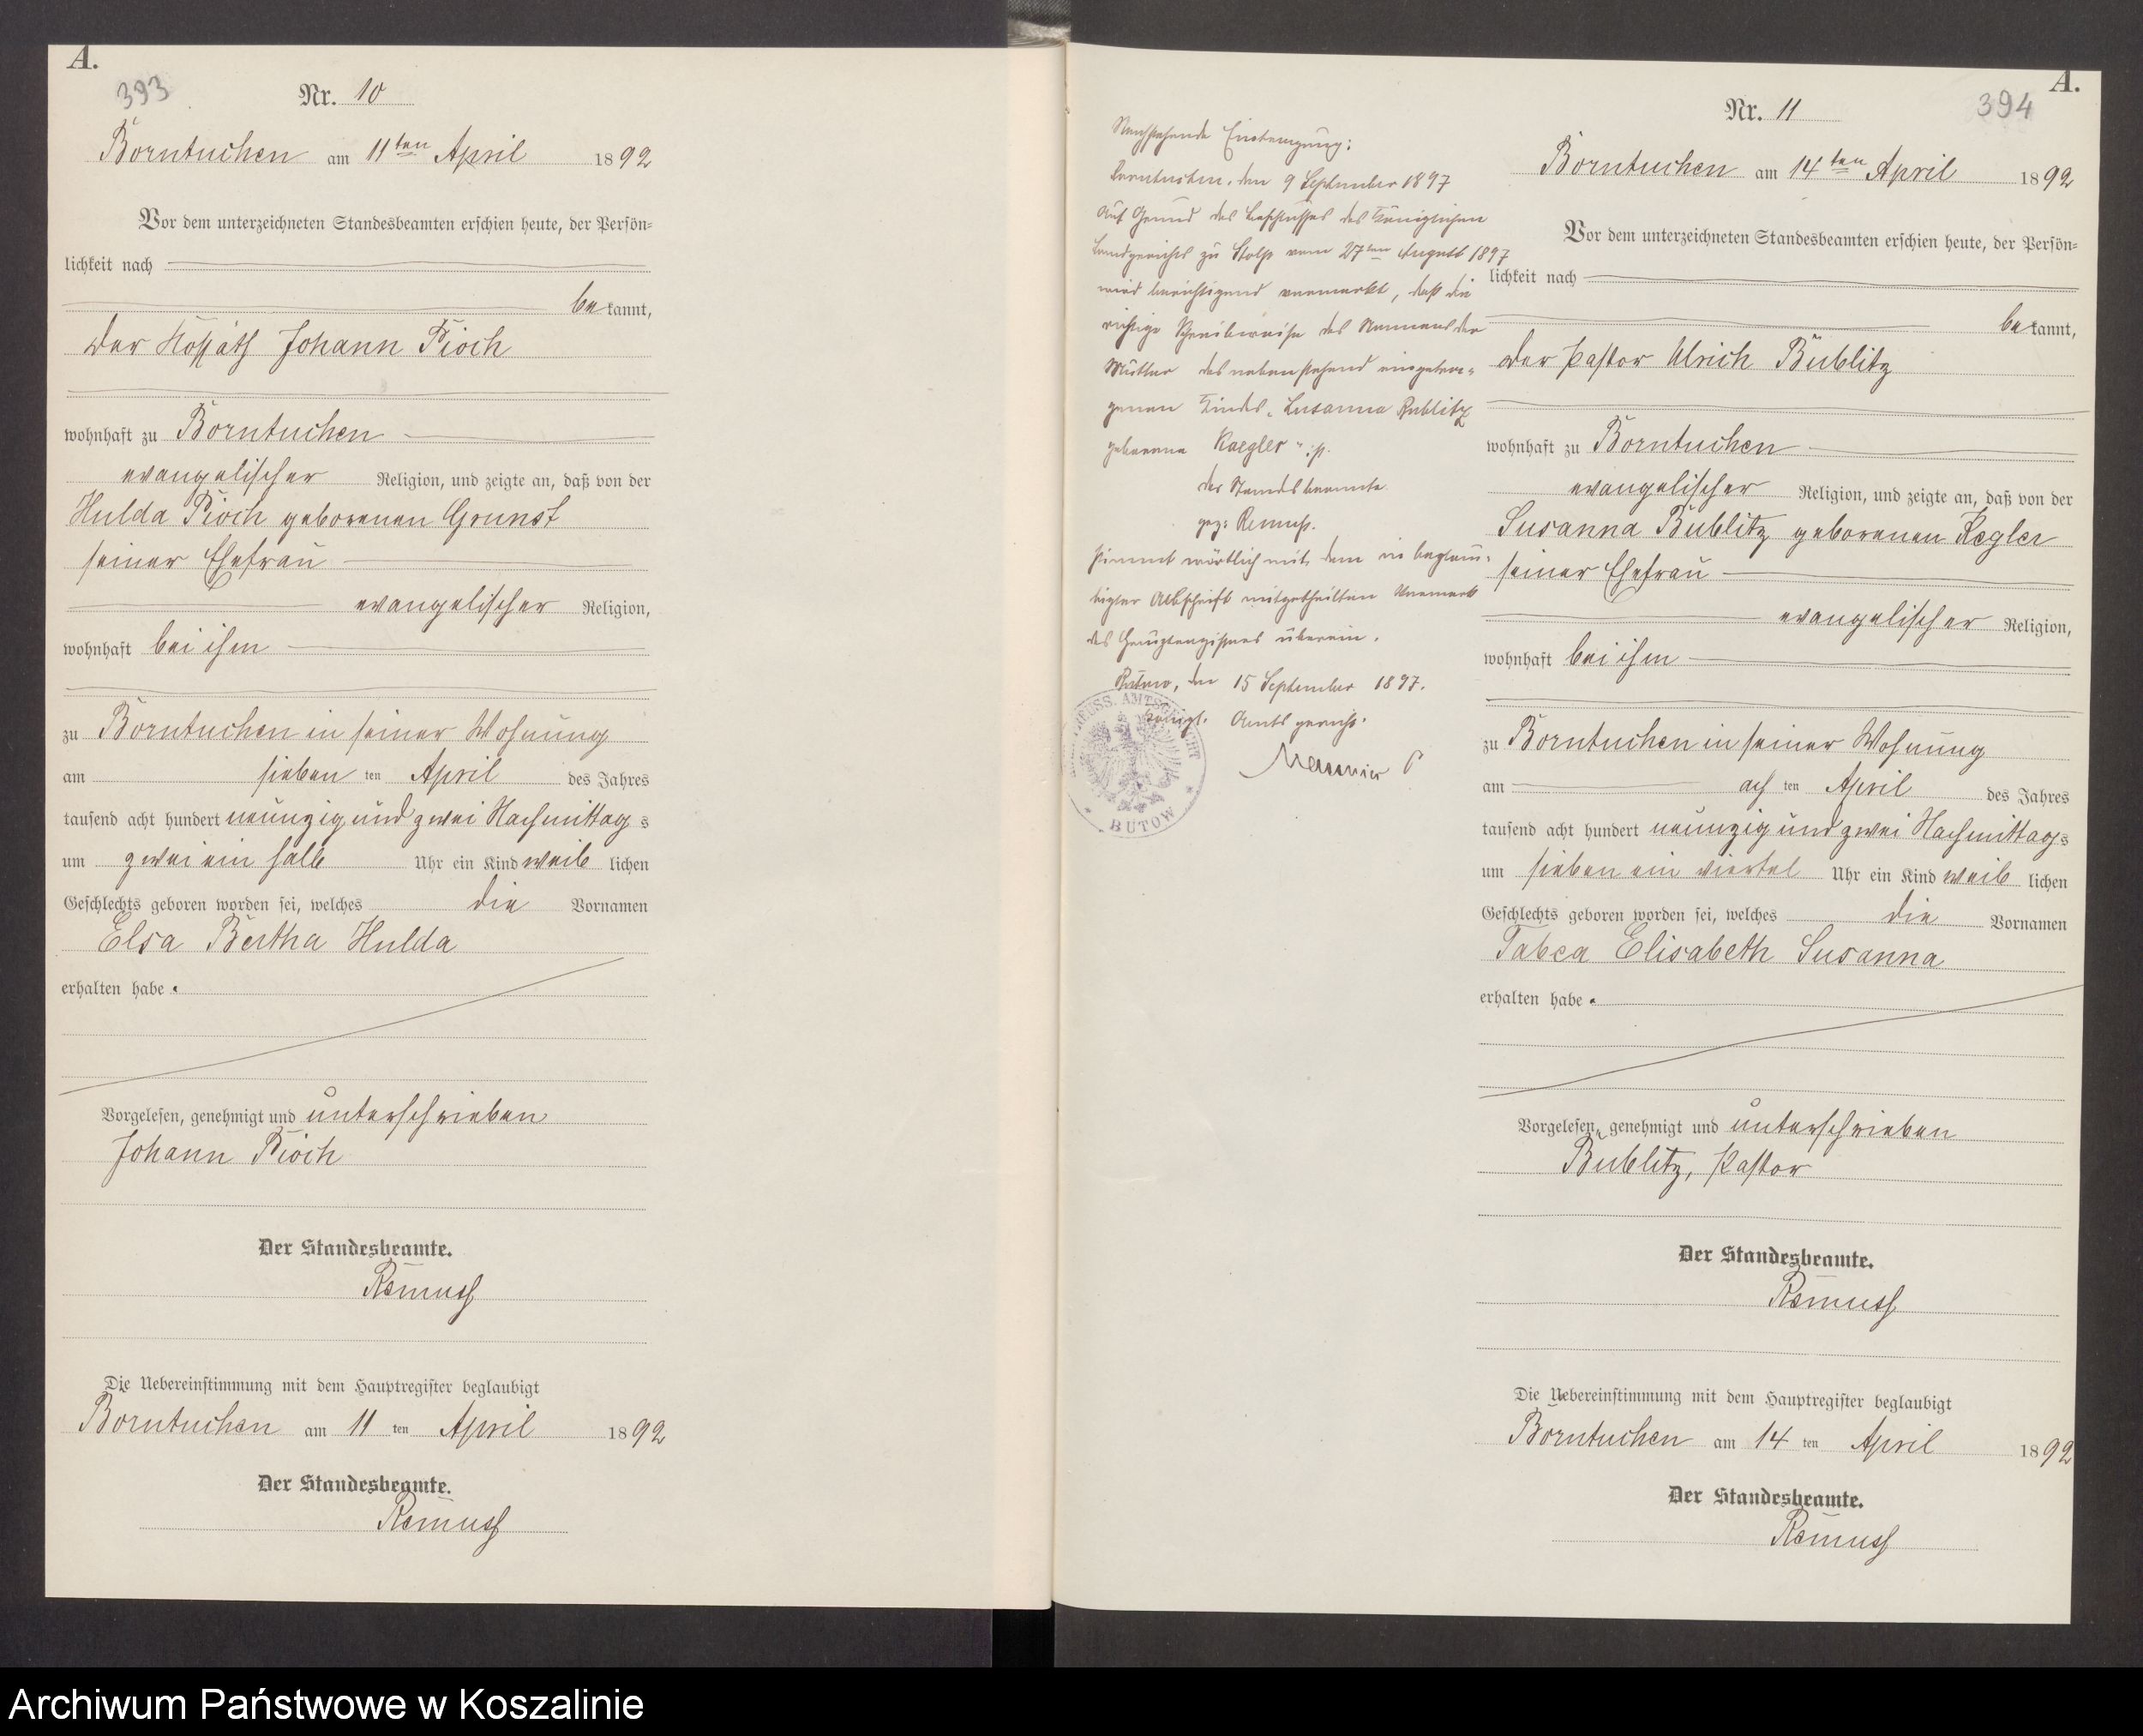 A.
393
Nr. 10
Borntuchen am 11ten April 1892
Vor dem unterzeichneten Standesbeamten erschien heute, der Persön-
lichkeit nach
bekannt,
der Kossäth Johann Pioch
wohnhaft zu Borntuchen
evangelischer Religion, und zeigte an, daß von der
Hulda Pioch geborenen Grunst
seiner Ehefrau
evangelischer Religion,
wohnhaft bei ihm
zu Borntuchen in seiner Wohnung
am sieben ten April des Jahres
tausend acht hundert neunzig und zwei Nachmittags
um zwei ein halb Uhr ein Kind weiblichen
Geschlechts geboren worden sei, welches die Vornamen
Elsa Bertha Hulda
erhalten habe.
Vorgelesen, genehmigt und unterschrieben
Johann Pioch
Der Standesbeamte.
Remuss
Die Uebereinstimmung mit dem Hauptregister beglaubigt
Borntuchen am 11 ten April 1892
Der Standesbeamte.
Remuss
Nachstehende Eintragung:
Borntuchen, den 9 September 1897
Auf Grund des Beschlusses des Königlichen
Landgerichts zu Stolp vom 27ten August 1897
wird berichtigend vermerkt, daß die
richtige Schreibweise des Namens der
Mutter des nebenstehend eingetra-
genen Kindes „Susanna Bublitz
geborene Kaegler"
der Standesbeamte
gez: Remuss.
stimmt wörtlich mit dem in beglau-
bigter Abschrift mitgetheilten Vermerk
des Hauptregisters überein.
Bütow, den 15 September 1897.
Königl. Amtsgericht.
PREUSS. AMTSGERICHT
* BÜTOW *
A.
394
Nr. 11
Borntuchen am 14ten April 1892
Vor dem unterzeichneten Standesbeamten erschien heute, der Persön-
lichkeit nach
bekannt,
der Pastor Ulrich Bublitz
wohnhaft zu Borntuchen
evangelischer Religion, und zeigte an, daß von der
Susanna Bublitz geborenen Kegler
seiner Ehefrau
evangelischer Religion,
wohnhaft bei ihm
zu Borntuchen in seiner Wohnung
am ach ten April des Jahres
tausend acht hundert neunzig und zwei Nachmittags
um sieben ein viertel Uhr ein Kind weiblichen
Geschlechts geboren worden sei, welches die Vornamen
Tabea Elisabeth Susanna
erhalten habe.
Vorgelesen, genehmigt und unterschrieben
Bublitz, Pastor
Der Standesbeamte.
Remuss
Die Uebereinstimmung mit dem Hauptregister beglaubigt
Borntuchen am 14 ten April 1892
Der Standesbeamte.
Remuss
Archiwum Państwowe w Koszalinie